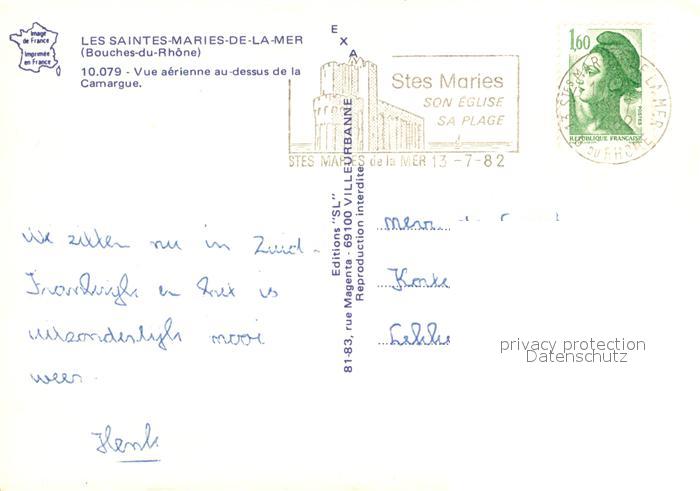 Image
de France
Imprimée
en France
LES SAINTES-MARIES-DE-LA-MER
(Bouches-du-Rhône)
10.079 - Vue aérienne au-dessus de la
Camargue.
EXA
Stes Maries
SON ÉGLISE
SA PLAGE
STES MARIES de la MER 13 -7-82
1,60
POSTES
REPUBLIQUE FRANÇAISE
STES MARIES DE LA MER
DU RHONE
We zitten nu in Zuid-
Frankrijk en het is
uitzonderlijk mooi
weer.
Henk
Editions "SL"
81-83, rue Magenta - 69100 VILLEURBANNE
Reproduction interdite
privacy protection
Datenschutz